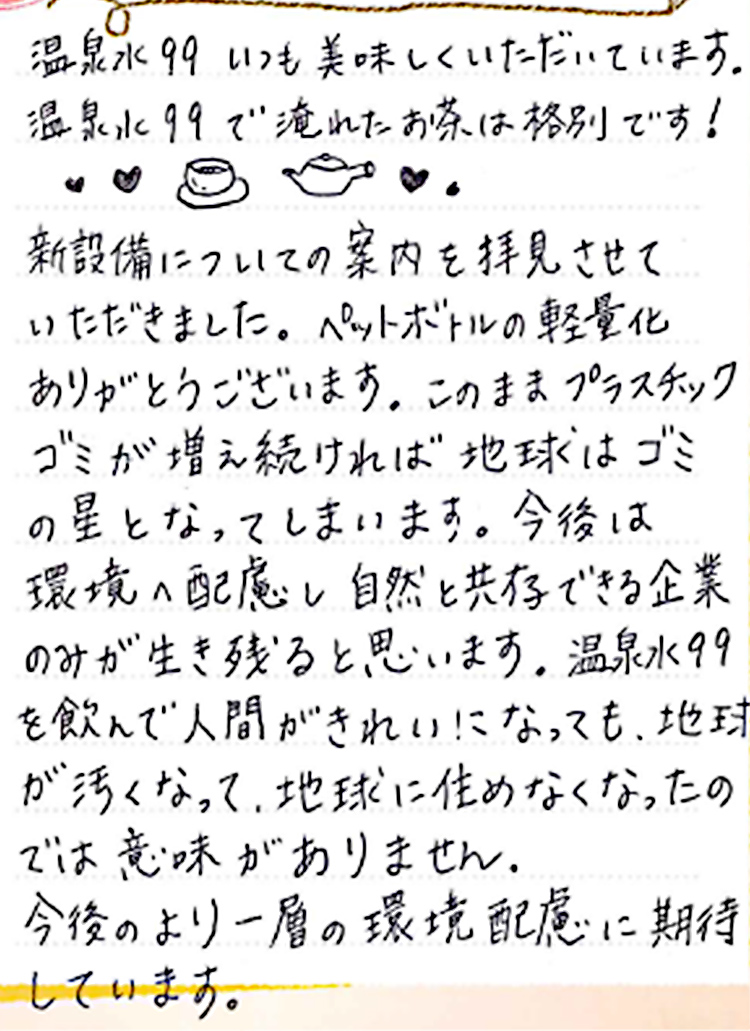 温泉水99 いつも美味しくいただいています。
温泉水99で淹れたお茶は格別です!
新設備についての案内を拝見させて
いただきました。ペットボトルの軽量化
ありがとうございます。このままプラスチック
ゴミが増え続ければ地球はゴミ
の星となってしまいます。今後は
環境へ配慮し自然と共存できる企業
のみが生き残ると思います。温泉水99
を飲んで人間がきれいになっても、地球
が汚くなって、地球に住めなくなったの
では意味がありません。
今後のより一層の環境配慮に期待
しています。